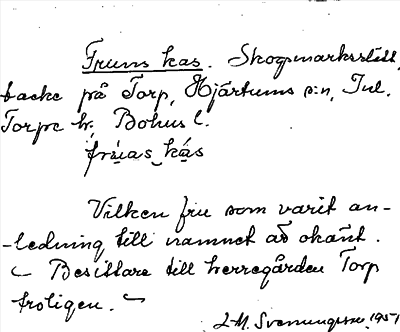 Fruns kas. Skogsmarksslätt,
backe på Torp, Hjärtums s:n, Inl.
Torpe hr, Bohus l.
frúas kás
Vilken fru som varit an-
-ledning till namnet är okänt.
Besittare till herregården Torp
troligen.
Svenungsson 1951